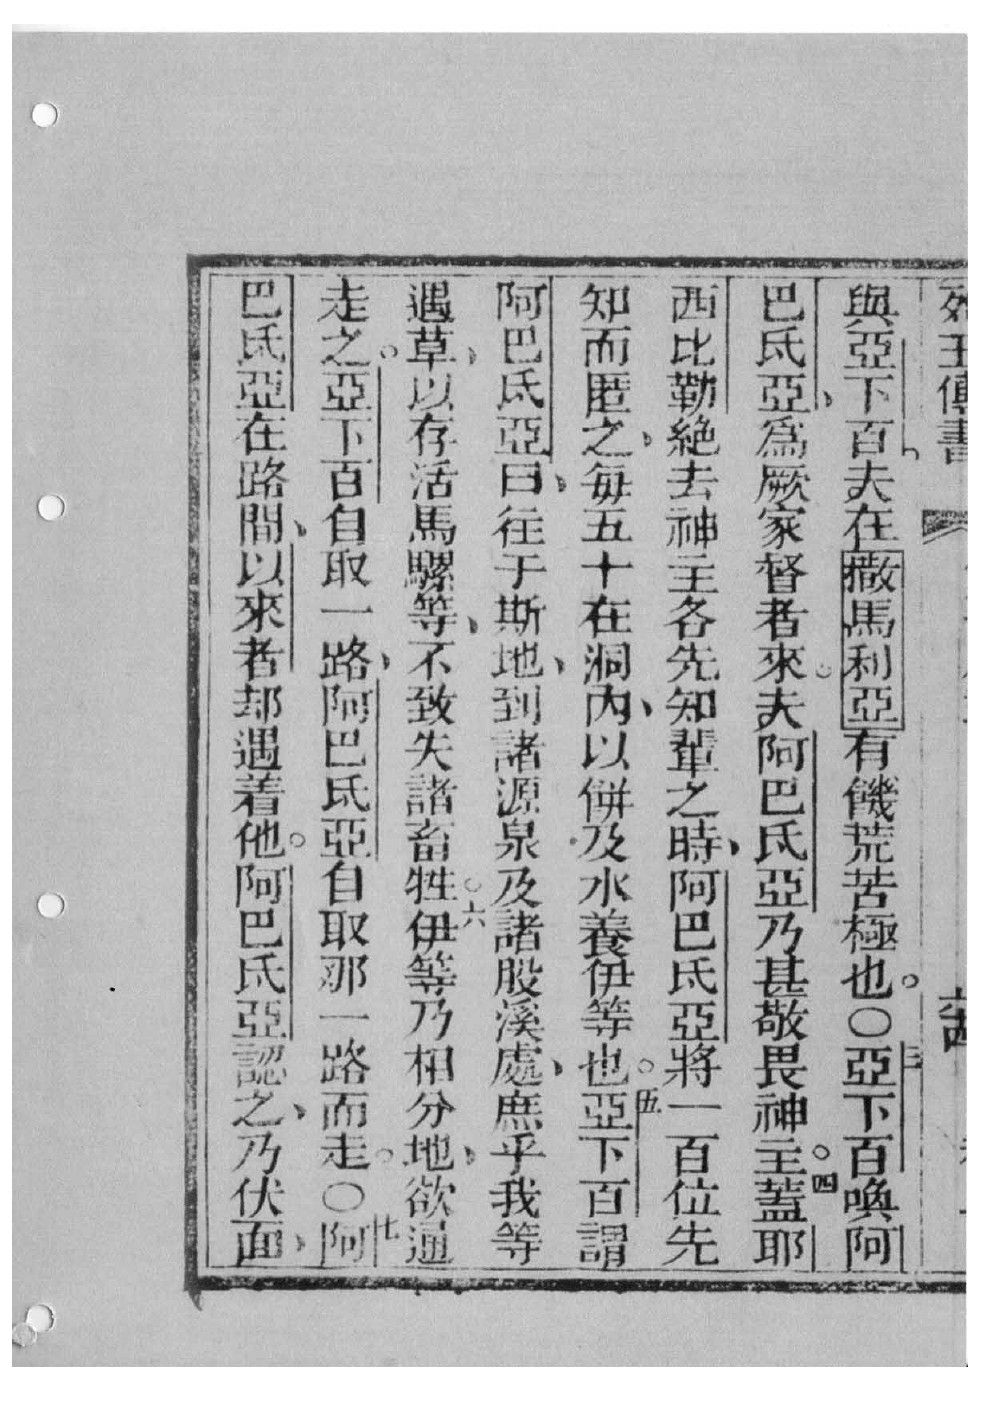 列王傳書
與亞下百夫在撒馬利亞有饑荒苦極也。〇三亞下百喚阿
巴氐亞、爲厥家督者來。夫阿巴氐亞乃甚敬畏神主。四蓋耶
西比勒絶去神主各先知輩之時、阿巴氐亞將一百位先
知而匿之、每五十在洞內、以餅及水養伊等也。五亞下百謂
阿巴氐亞曰、往于斯地、到諸源泉及諸股溪處、庶乎我等
遇草、以存活馬騾等、不致失諸畜牲。六伊等乃相分地、欲通
走之。亞下百自取一路、阿巴氐亞自取那一路而走。〇七阿
巴氐亞在路間、以來者却遇着他。阿巴氐亞認之、乃伏面、